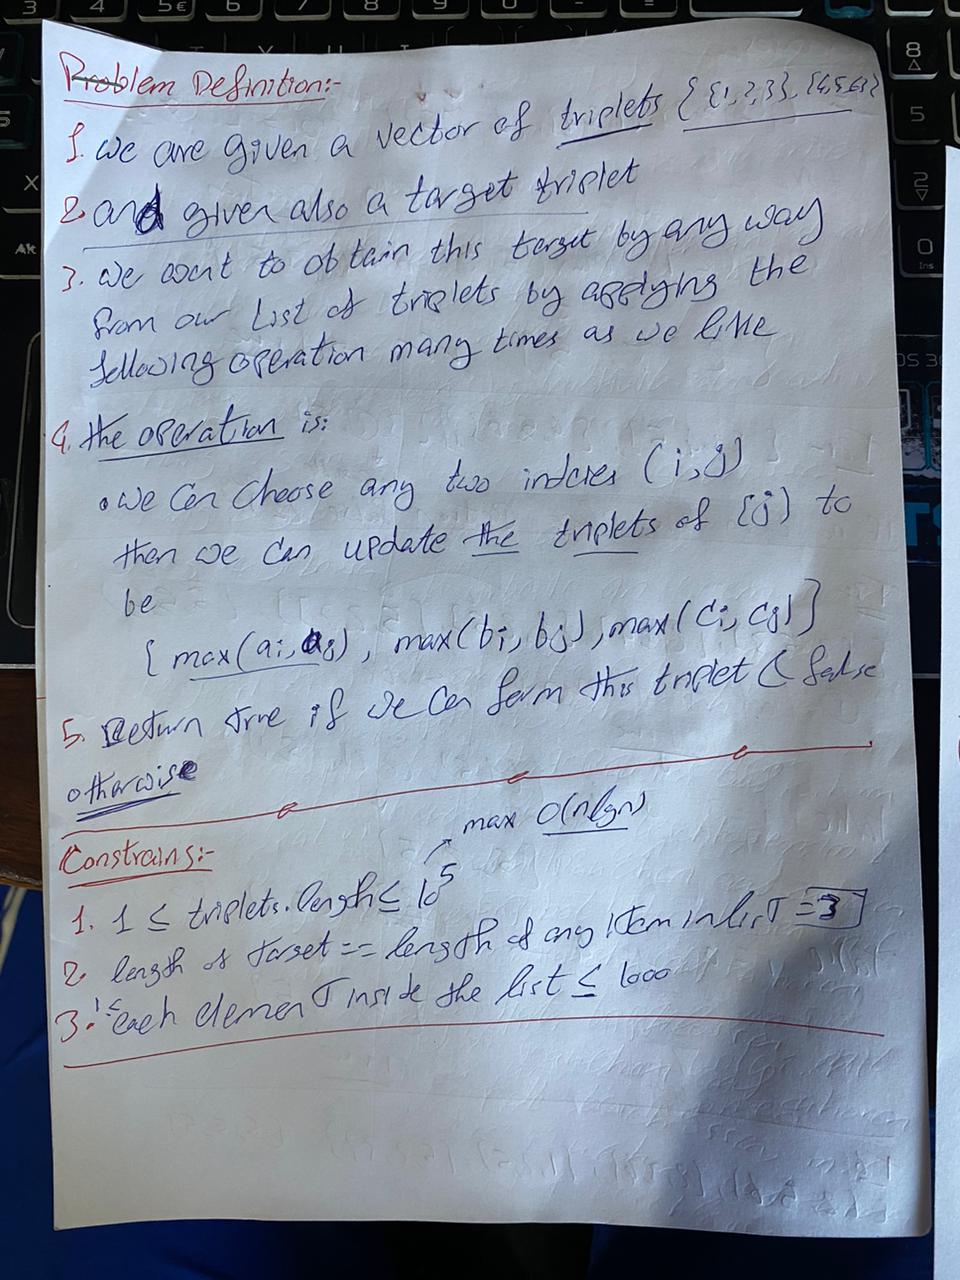 Problem Definition:-
1. we are given a vector of triplets { {1,2,3}, {4,5,6} }
2. and given also a target triplet
3. we want to obtain this target by any way
from our list of triplets by applying the
following operation many times as we like
4. the operation is:
• we can choose any two indcies (i,j)
then we can update the triplets of {j} to
be
{ max(ai, aj), max(bi, bj), max(ci, cj) }
5. Return true if we can form this triplet & false
otherwise
max O(nlgn)
Constrains:-
1. 1 ≤ triplets.length ≤ 10^5
2. length of target == length of any item in list = 3
3. 1≤ each element inside the list ≤ 1000